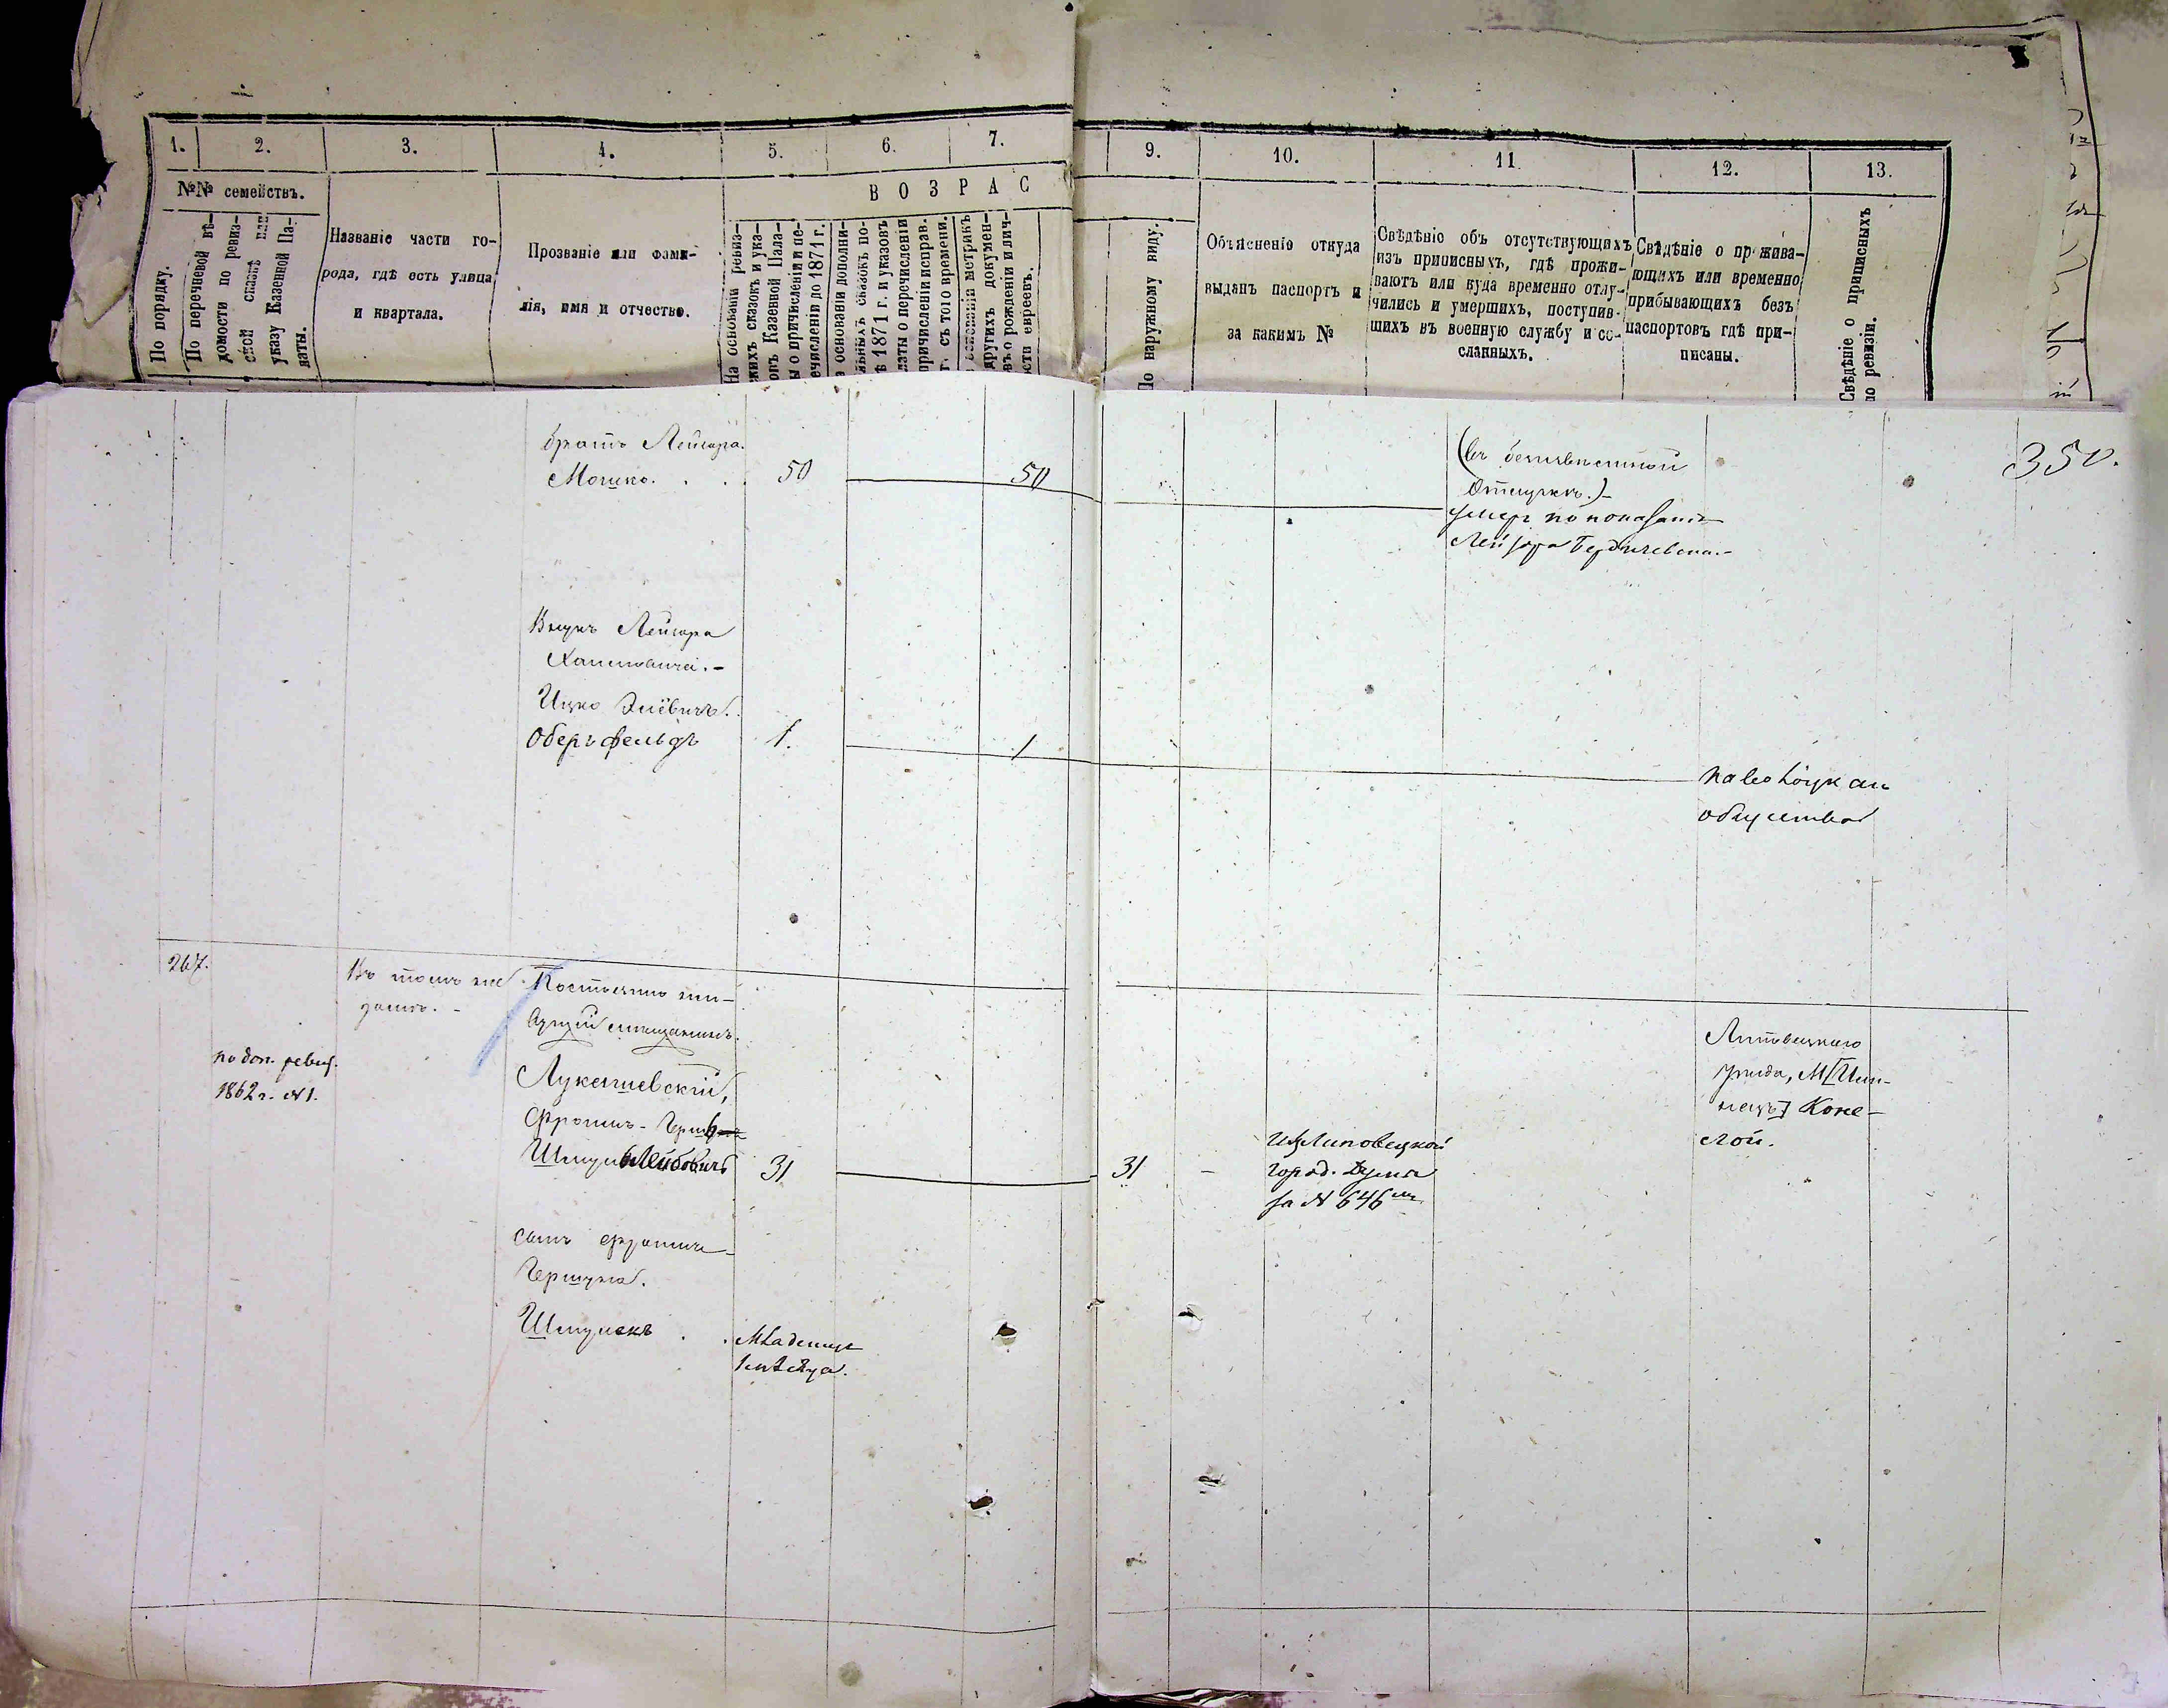 1.
2.
3.
4.
5.
6.
7.
9.
10.
11
12.
13.
№№ семействъ.
ВОЗРАС
По порядку.
По перечневой вѣ-
домости по ревиз-
ской сказкѣ или
указу Казенной Па-
латы.
Названіе части го-
рода, гдѣ есть улица
и квартала.
Прозваніе или фами-
лія, имя и отчество.
На основаніи ревиз-
скихъ сказокъ и ука-
зовъ Казенной Пала-
ы о причисленіи и пе-
ечисленіи до 1871 г.
основаніи дополни-
льныхъ сказокъ по-
ѣ 1871 г. и указовъ
латы о перечисленіи
причисленіи исправ.
г. съ того времени.
основаніи метрикъ
другихъ докумен-
въ о рожденіи и лич-
ости евреевъ.
По наружному виду.
Объясненіе откуда
выданъ паспортъ и
за какимъ №
Свѣдѣніе объ отсутствующихъ
изъ приписныхъ, гдѣ прожи-
ваютъ или куда временно отлу-
чились и умершихъ, поступив-
шихъ въ военную службу и со-
сланныхъ.
Свѣдѣніе о прожива-
ющихъ или временно
прибывающихъ безъ
паспортовъ гдѣ при-
писаны.
Свѣдѣніе о приписныхъ
по ревизіи.
350.
братъ Лейзора
Мошко. . . 50 50
(въ безизвѣстной
отлучкѣ.)
умеръ по показанію
Лейзора Бердичевска.
Внукъ Лейзора
Хаимовича.
Ицко Элевичъ.
Оберъфельдъ 1. 1
общества
267.
Въ томъ же
домѣ.
по доп. ревиз.
1862 г. №1.
Постоянно жи-
вущій мѣщанинъ.
Лукашевскій,
Фроимъ-Герш
Шмуль Лейбовичъ 31 31
изъ Липовецкой
город. Думы
за № 646
Липовецкаго
уѣзда, М.
Коне-
лой.
сынъ Фроима-
Гершка.
Шмулекъ . . Младенецъ